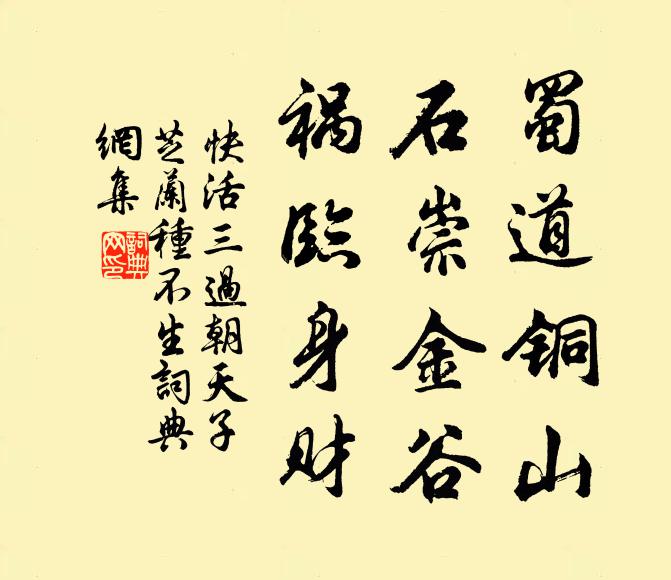 蜀道铜山
石崇金谷
祸临身财
快活三過朝天子
芝蘭種不生詞典
網集
詞典網印